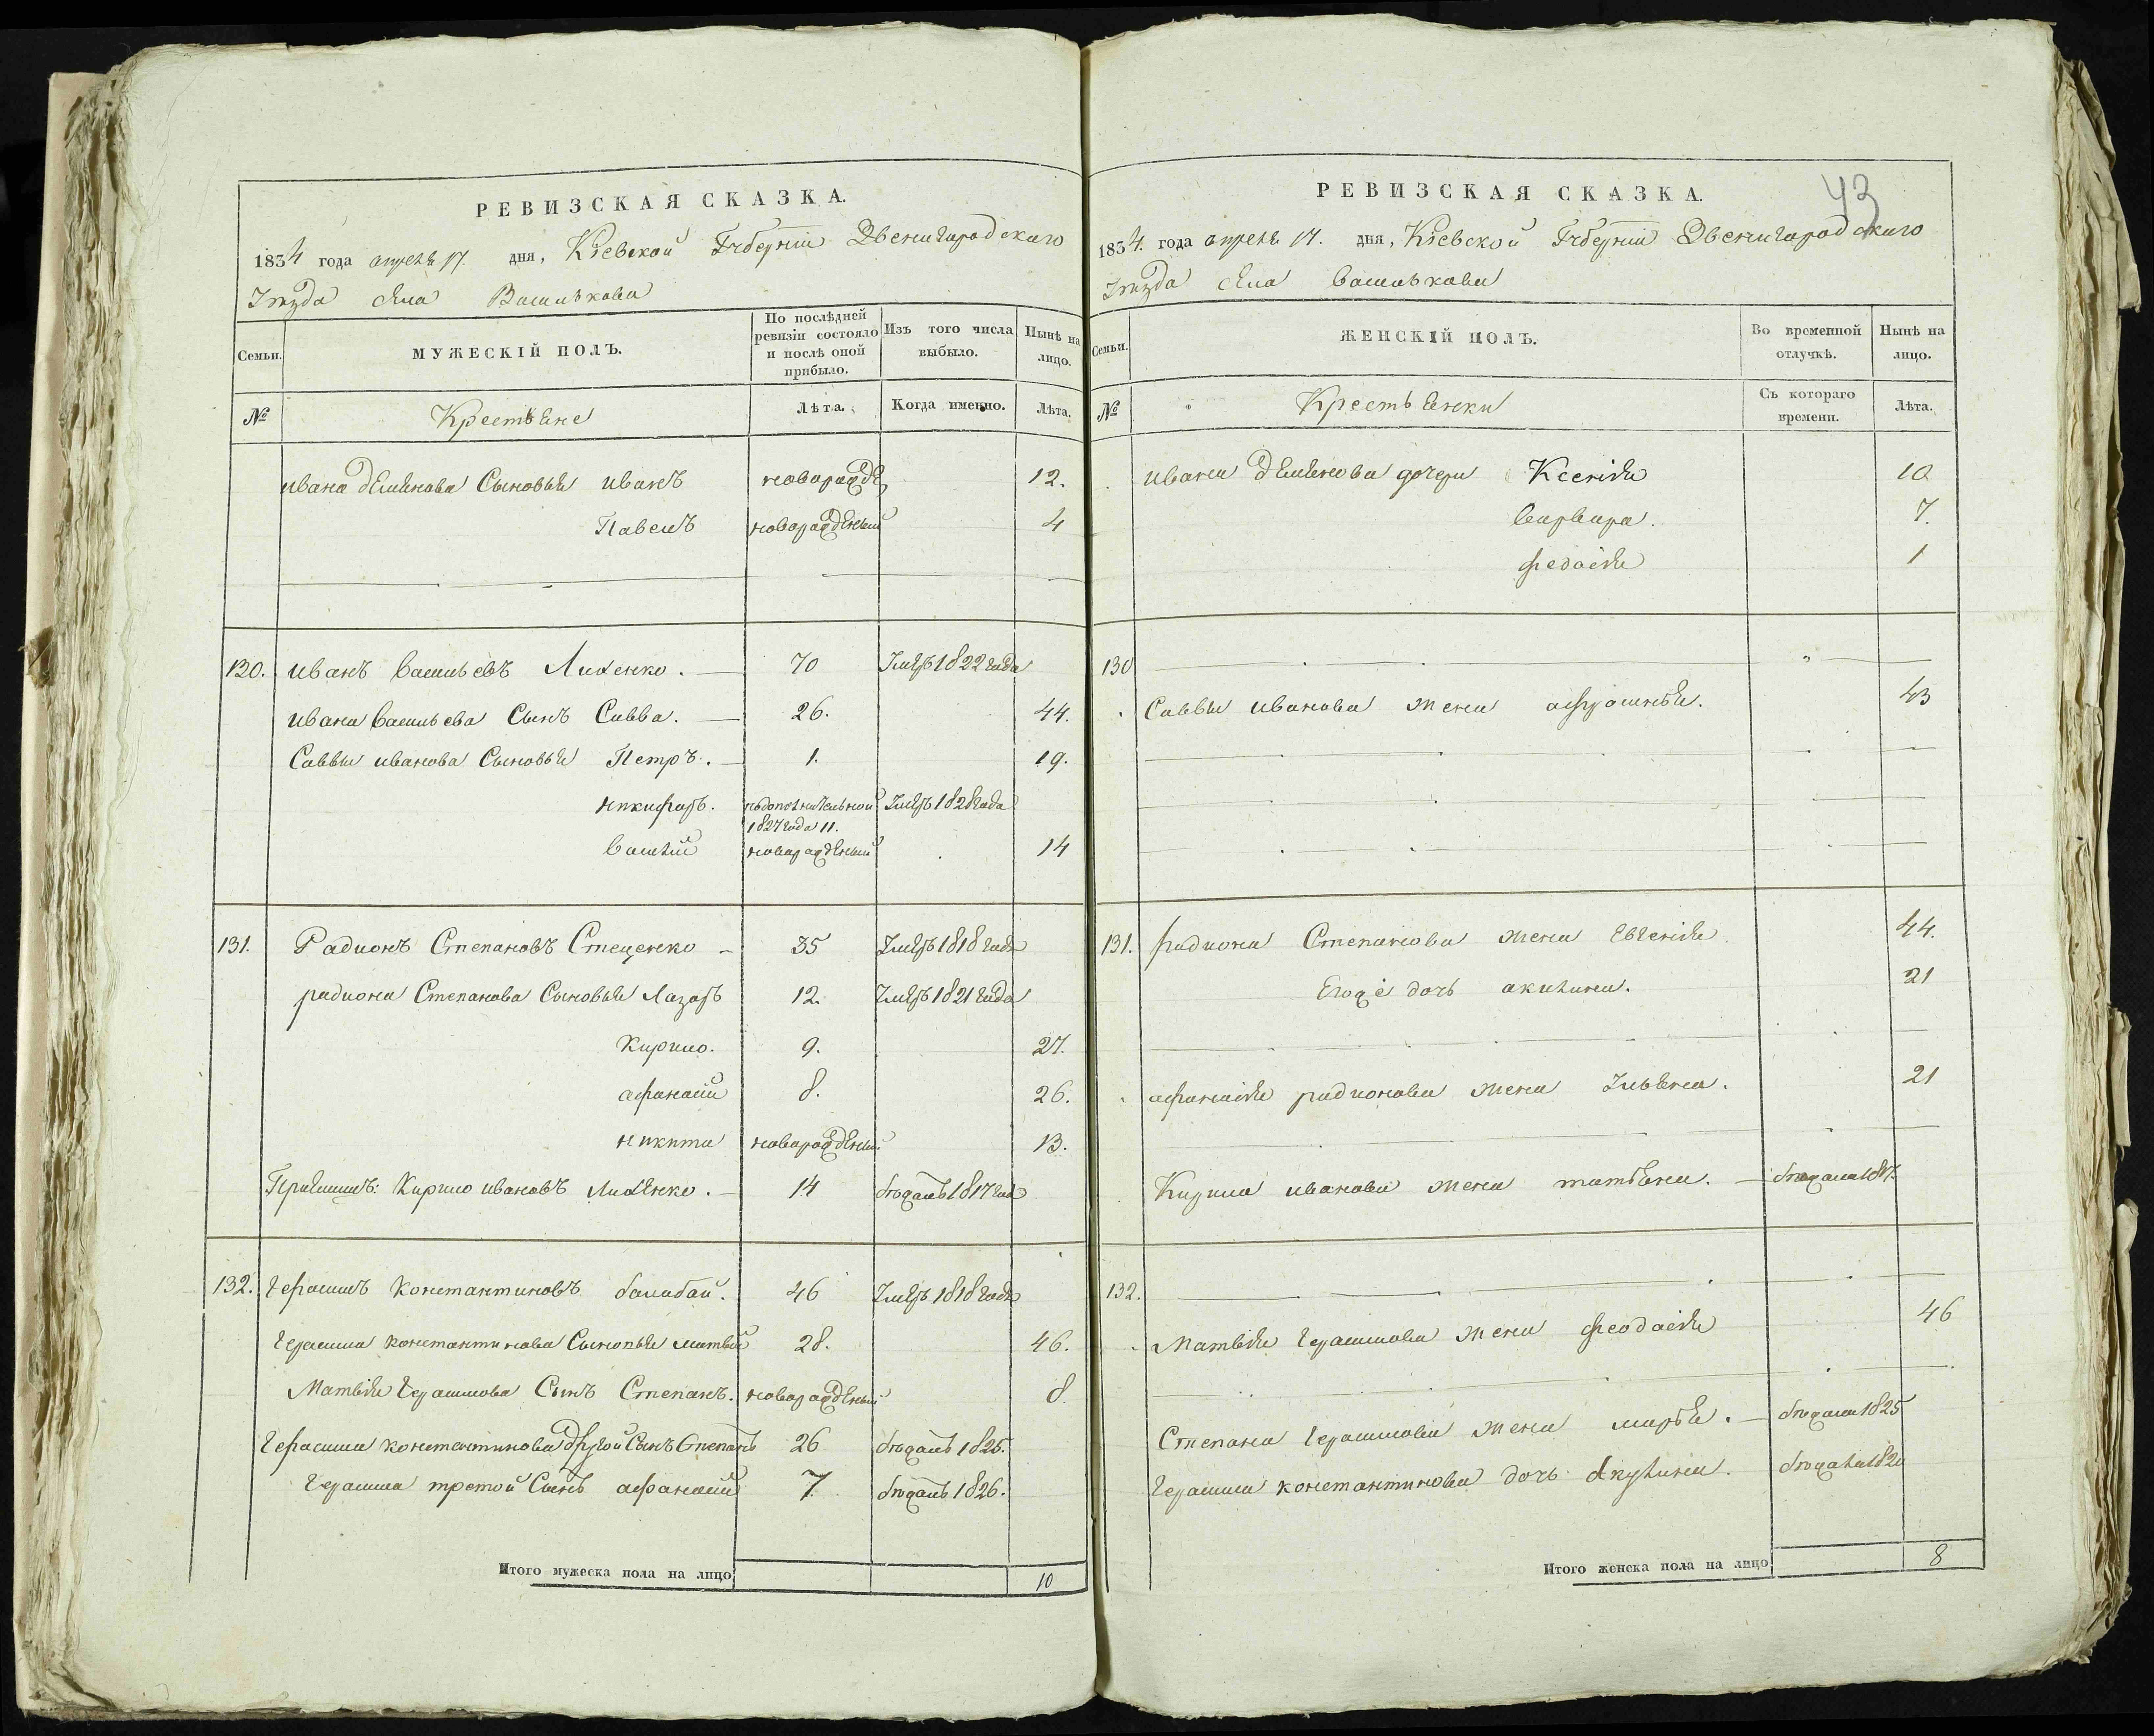 РЕВИЗСКАЯ СКАЗКА.
1834 года апреля 17. дня, Кіевской Губерніи Звенигородскаго
Уезда села Василькова
Семьи.
МУЖЕСКІЙ ПОЛЪ.
По послѣдней ревизіи состояло и послѣ оной прибыло.
Изъ того числа выбыло.
Нынѣ на лицо.
№
Крестьяне
Лѣта.
Когда именно.
Лѣта.
ивана демянова Сыновья иванъ новорожде 12.
Павелъ новорожденый 4
130. иванъ васильевъ Лисенко. 70 Умеръ 1822 года
ивана васильева Сынъ Савва. 26. 44.
Саввы иванова Сыновья Петръ. 1. 19.
никифоръ. 1827 года 11. Умеръ 1828 года
василій новорожденый 14
131. Радионъ Степановъ Стеценко 35 Умеръ 1818 года
радиона Степанова Сыновья Лазаръ 12. Умеръ 1821 года
Кирило. 9. 27.
афанасій 8. 26.
никита новорожденый 13.
Кирило ивановъ Лисенко. 14 1817 года
132. герасимъ константиновъ балабай. 46 Умеръ 1818 года
герасима константинова Сыновья матвей 28. 46.
Матвія герасимова Сынъ Степанъ. новорожденый 8
герасима константинова другой Сынъ Степанъ 26 1825.
герасима третой Сынъ афанасій 7. 1826.
Итого мужеска пола на лицо 10
43
РЕВИЗСКАЯ СКАЗКА.
1834 года апреля 17. дня, Кіевской Губерніи Звенигородскаго
Уезда села василькова
Семьи.
ЖЕНСКІЙ ПОЛЪ.
Во временной отлучкѣ.
Нынѣ на лицо.
№
Крестьянки
Съ котораго времени.
Лѣта.
ивана демянова дочери Ксенія 10
варвара. 7.
федосія 1
130
Саввы иванова жена 43
131. радиона Степанова жена Евгенія 44.
дочь акилина. 21
афанасія радионова жена Уляна. 21
Кирила иванова жена татяна. 1817.
132.
Матвія герасимова жена феодосія 46
Степана герасимова жена марья. 1825
герасима константинова дочь акулина.
Итого женска пола на лицо 8